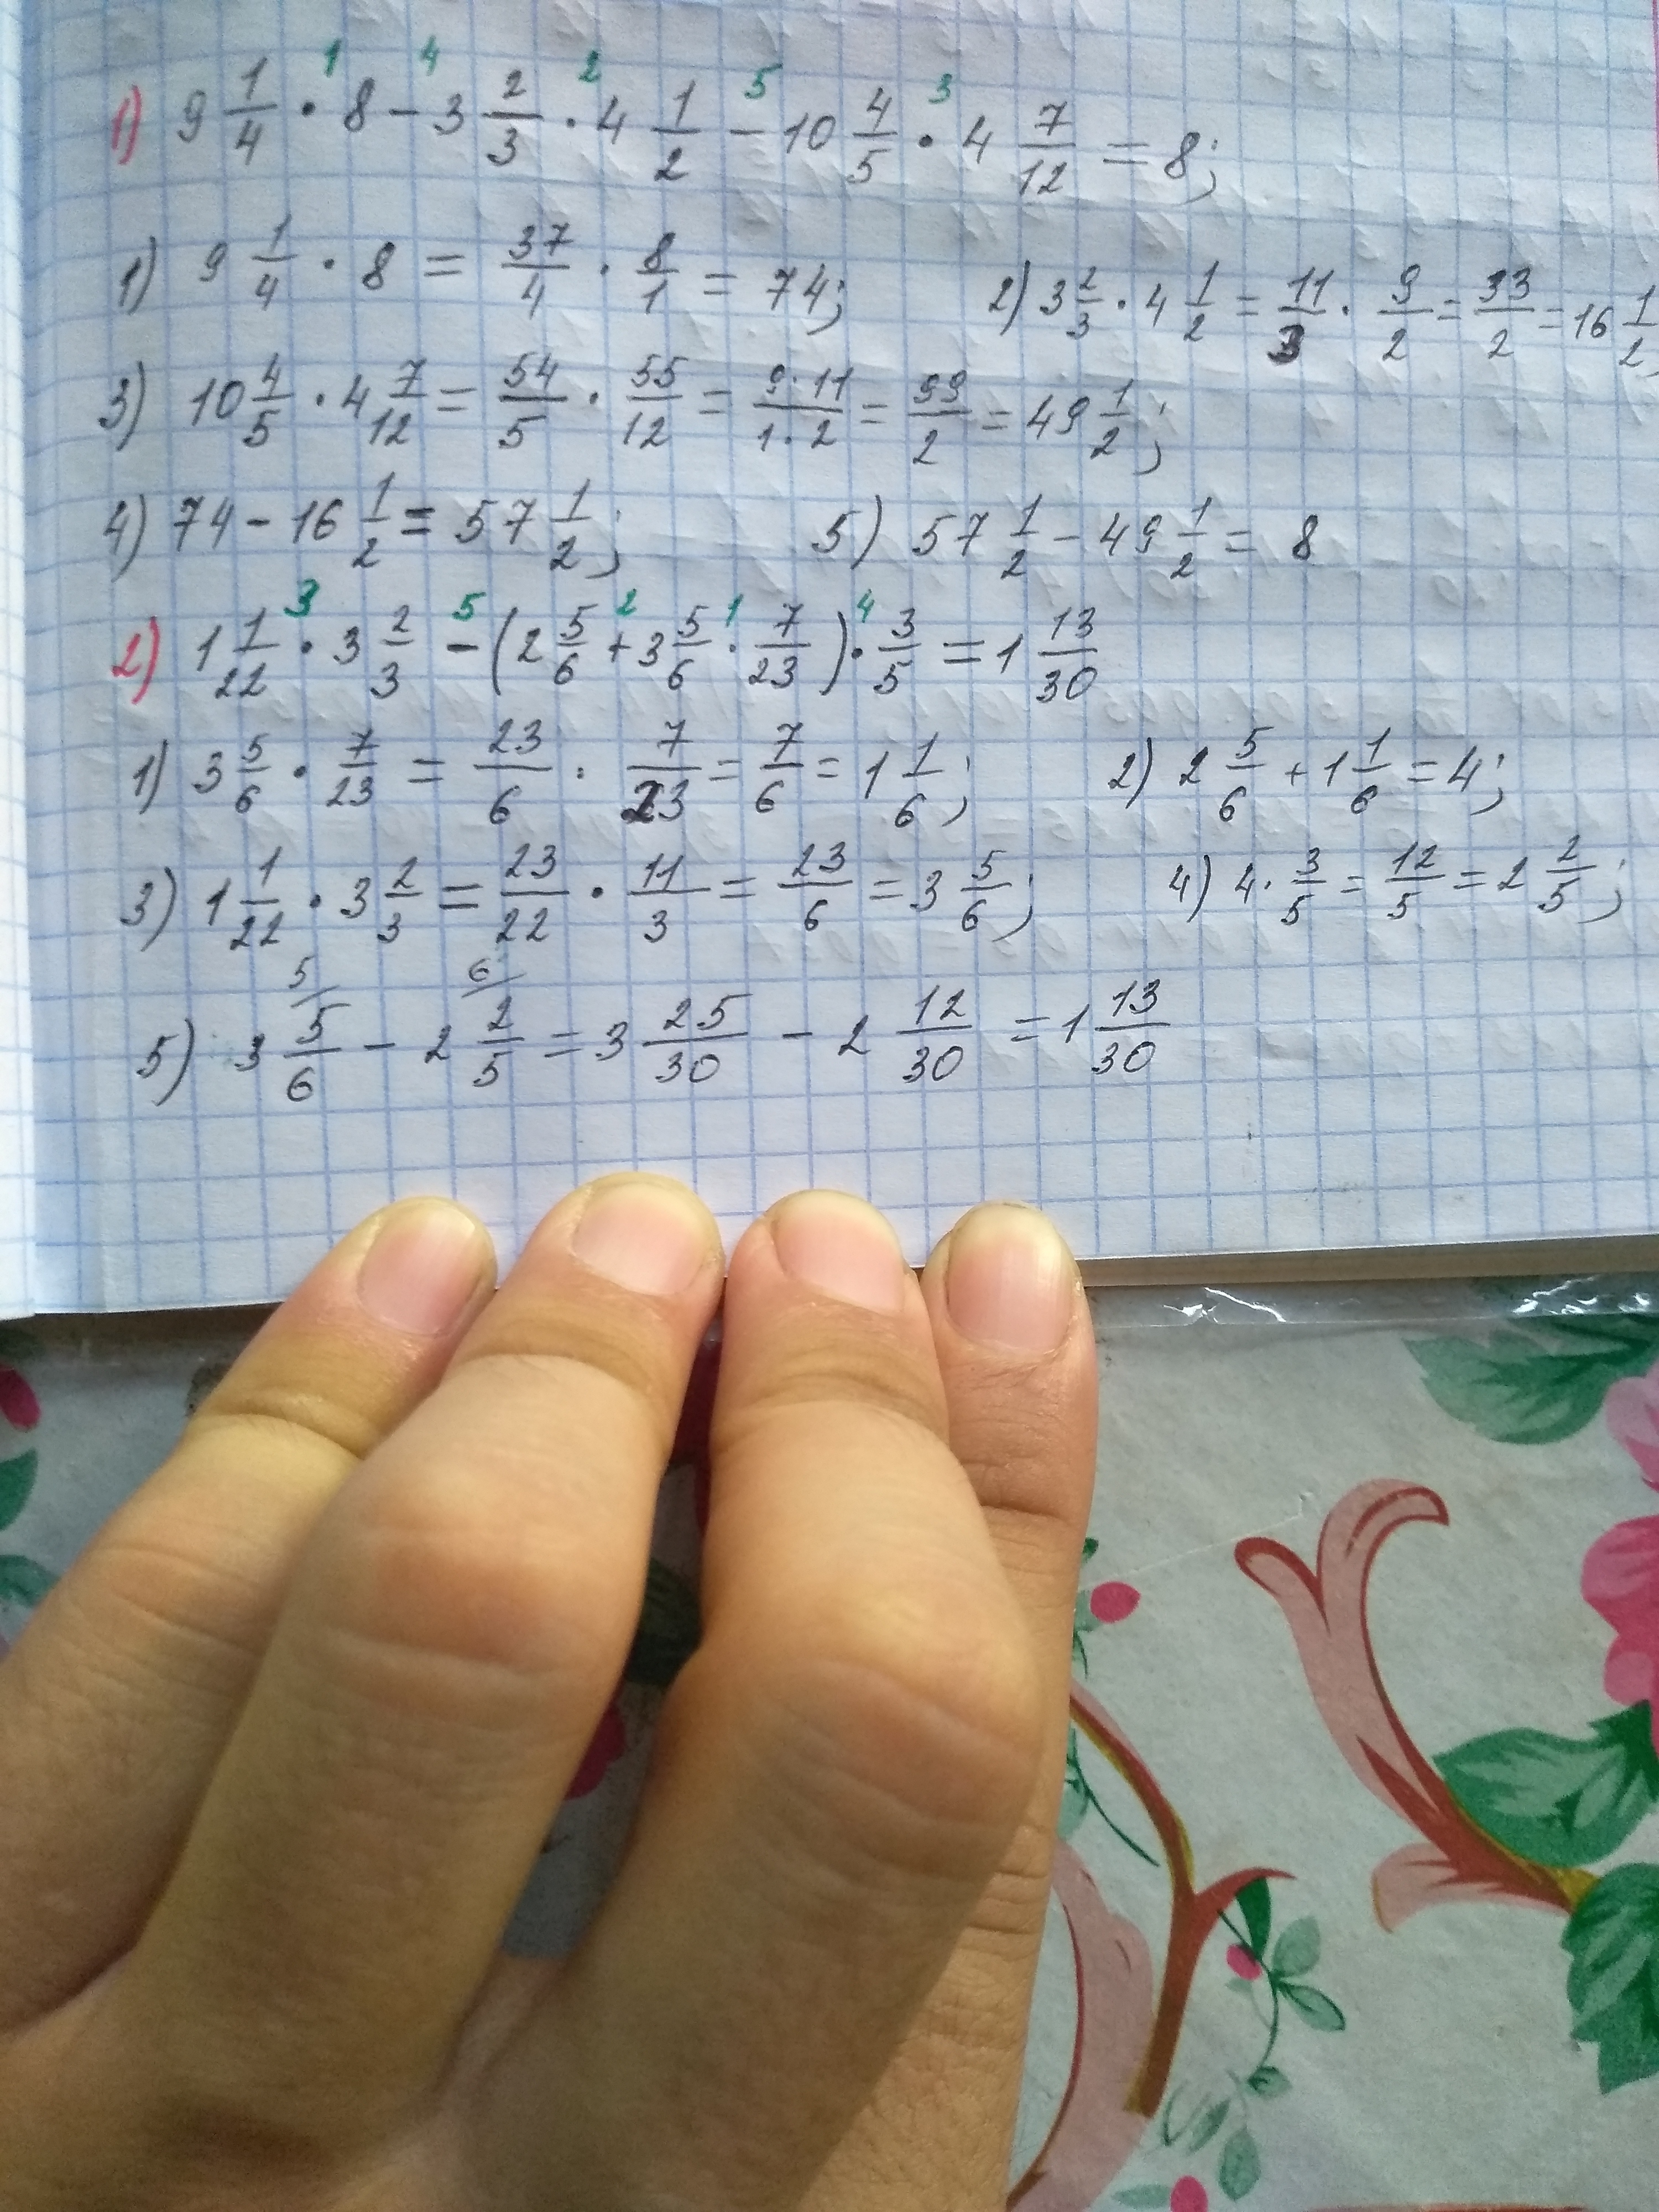 1 4 2 5 3
1) 9 1/4 · 8 − 3 2/3 · 4 1/2 − 10 4/5 · 4 7/12 = 8;
1) 9 1/4 · 8 = 37/4 · 8/1 = 74; 2) 3 2/3 · 4 1/2 = 11/3 · 9/2 = 33/2 = 16 1/2;
3) 10 4/5 · 4 7/12 = 54/5 · 55/12 = 9·11/1·2 = 99/2 = 49 1/2;
4) 74 − 16 1/2 = 57 1/2; 5) 57 1/2 − 49 1/2 = 8
3 5 2 1 4
2) 1 1/22 · 3 2/3 − (2 5/6 + 3 5/6 · 7/23) · 3/5 = 1 13/30
1) 3 5/6 · 7/23 = 23/6 · 7/23 = 7/6 = 1 1/6; 2) 2 5/6 + 1 1/6 = 4;
3) 1 1/22 · 3 2/3 = 23/22 · 11/3 = 23/6 = 3 5/6; 4) 4 · 3/5 = 12/5 = 2 2/5;
5/ 6/
5) 3 5/6 − 2 2/5 = 3 25/30 − 2 12/30 = 1 13/30